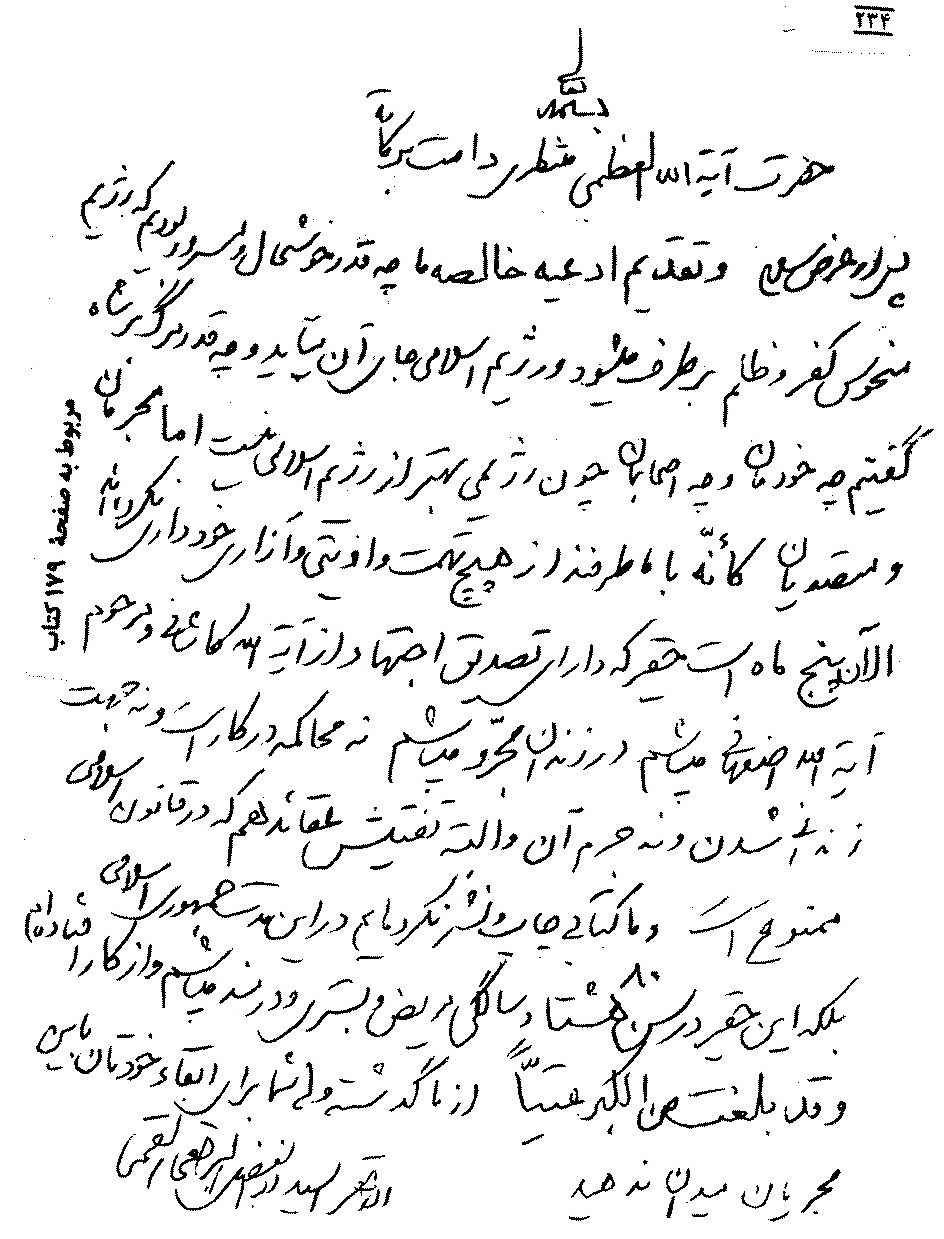 ۲۳۴
بسمه تعالی
حضرت آیة الله العظمی منتظری دامت برکاته
پس از عرض سلام و تقدیم ادعیه خالصه ما چه قدر خوشحال و مسرور بودیم که رژیم
منحوس کفر و ظلم برطرف میشود و رژیم اسلامی جای آن میآید و چه قدر مرگ بر شاه
گفتیم چه خودمان و چه اصحابمان چون رژیمی بهتر از رژیم اسلامی نیست اما مجریان
و متصدیان کأنّه با ما طرفند از هیچ تهمت و اذیتی و آزاری خودداری نکرده‌اند
الآن پنج ماه است حقیر که دارای تصدیق اجتهاد از آیة الله کاشانی و مرحوم
آیة الله اصفهانی میباشم در زندان میباشم نه محاکمه در کار است و نه جهت
زندانی شدن و نه جرم آن والبته تفتیش عقائد هم که در قانون اسلامی
ممنوع است و ما کتابی چاپ و نشر نکرده‌ایم در این مدت جمهوری اسلامی
بلکه این حقیر در سن هشتاد ۸۰ سالگی مریض و بستری و در بند میباشم و از کار افتاده‌ام
و قد بلغت من الکبر عتیاً از ما گذشته ولی شما برای ابقاء خودتان باین
مجریان میدان ندهید
الاحقر السید ابوالفضل البرقعی القمی
مربوط به صفحهٔ ۱۷۹ کتاب